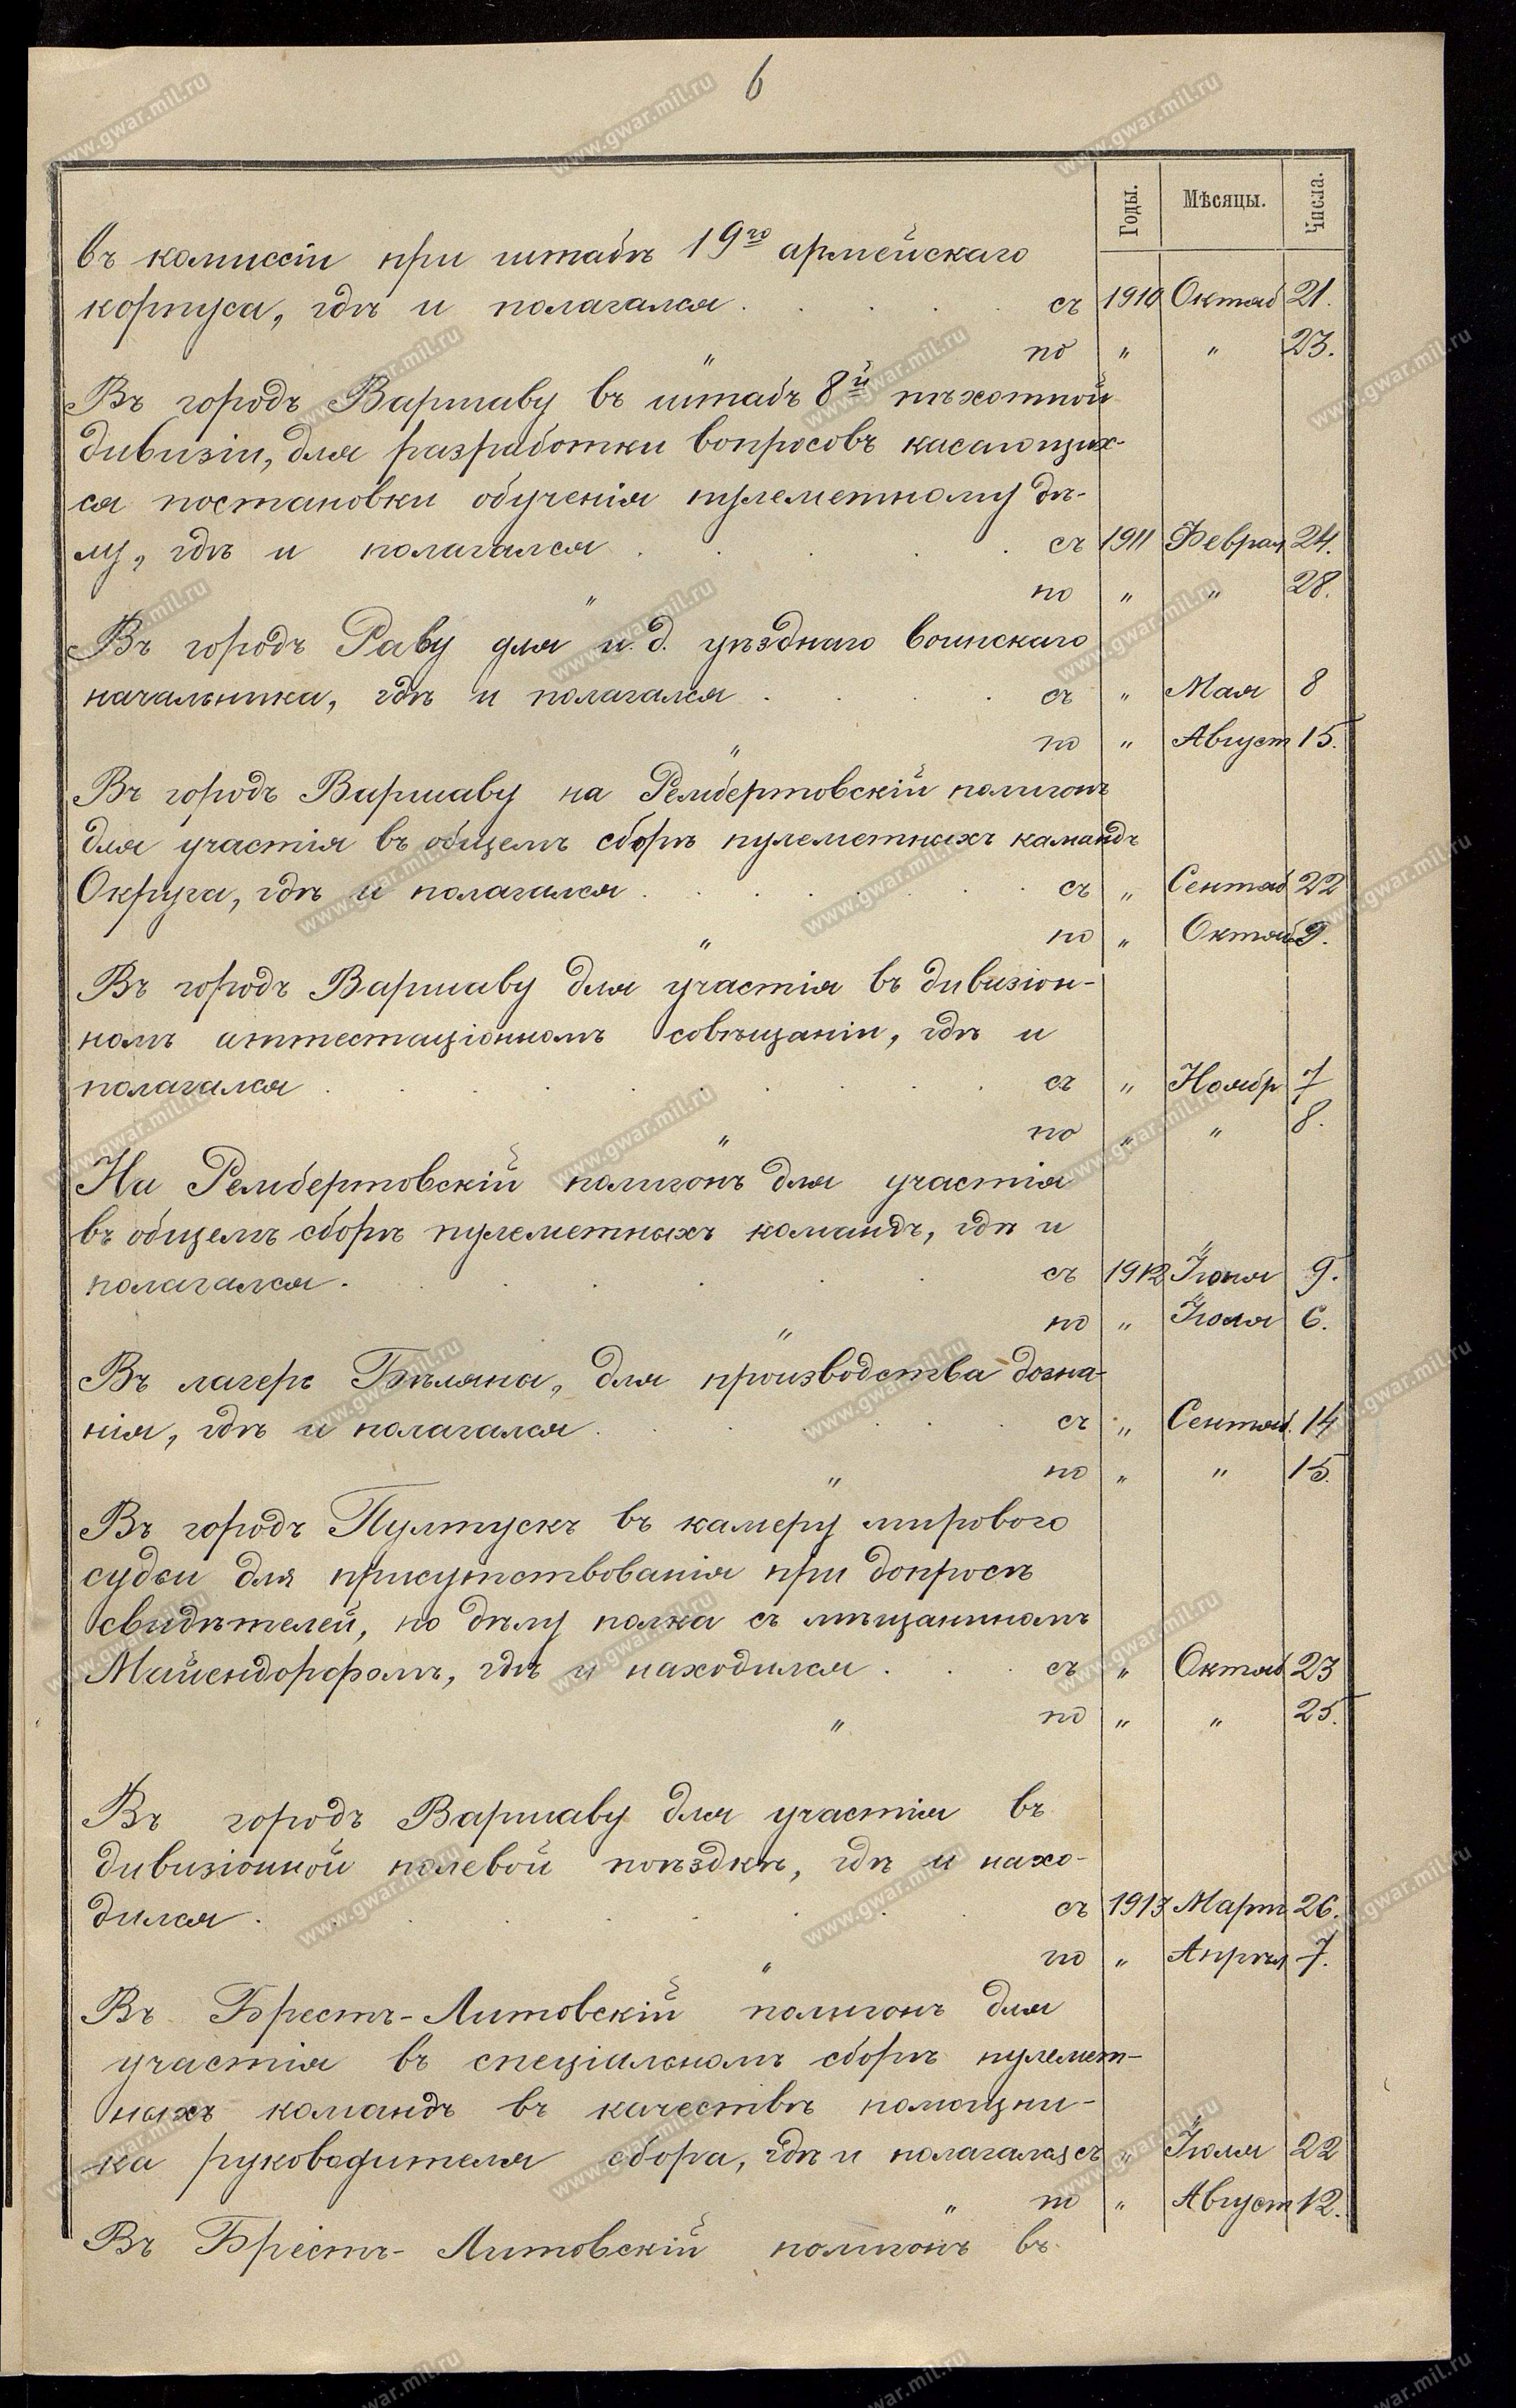 6
Годы. Мѣсяцы. Числа.
въ комиссіи при штабѣ 19го армейскаго
корпуса, гдѣ и полагался . . . . . съ 1910 Октяб 21.
" по " " 23.
Въ городъ Варшаву въ штабъ 8й пѣхотной
дивизіи, для разработки вопросовъ касающих-
ся постановки обученія пулеметному дѣ-
лу, гдѣ и полагался . . . . . съ 1911 Феврал 24.
" по " " 28.
Въ городъ Раву для и. д. уѣзднаго воинскаго
начальника, гдѣ и полагался . . . . съ " Мая 8
" по " Август 15.
Въ городъ Варшаву на Рембертовскій полигонъ
для участія въ общемъ сборѣ пулеметныхъ командъ
Округа, гдѣ и полагался . . . . . . . съ " Сентяб 22
" по " Октяб 9.
Въ городъ Варшаву для участія въ дивизіон-
номъ аттестаціонномъ совѣщаніи, гдѣ и
полагался . . . . . . . съ " Ноябр 7
" по " " 8.
На Рембертовскій полигонъ для участія
въ общемъ сборѣ пулеметныхъ командъ, гдѣ и
полагался . . . . . . съ 1912 Іюня 9.
" по " Іюля 6.
Въ лагерь Бѣляны, для производства дозна-
нія, гдѣ и полагался . . . . . съ " Сентяб. 14
" по " " 15.
Въ городъ Пултускъ въ камеру мирового
судьи для присутствованія при допросѣ
свидѣтелей, по дѣлу полка съ мѣщаниномъ
Майендорфомъ, гдѣ и находился . . . съ " Октяб 23
" по " " 25.
Въ городъ Варшаву для участія въ
дивизіонной полевой поѣздкѣ, гдѣ и нахо-
дился . . . . . . . . съ 1913 Март 26.
" по " Апрѣл 7.
Въ Брестъ-Литовскій полигонъ для
участія въ спеціальномъ сборѣ пулемет-
ныхъ командъ въ качествѣ помощни-
ка руководителя сбора, гдѣ и полагался съ " Іюля 22
" по " Август 12.
Въ Брестъ-Литовскій полигонъ въ